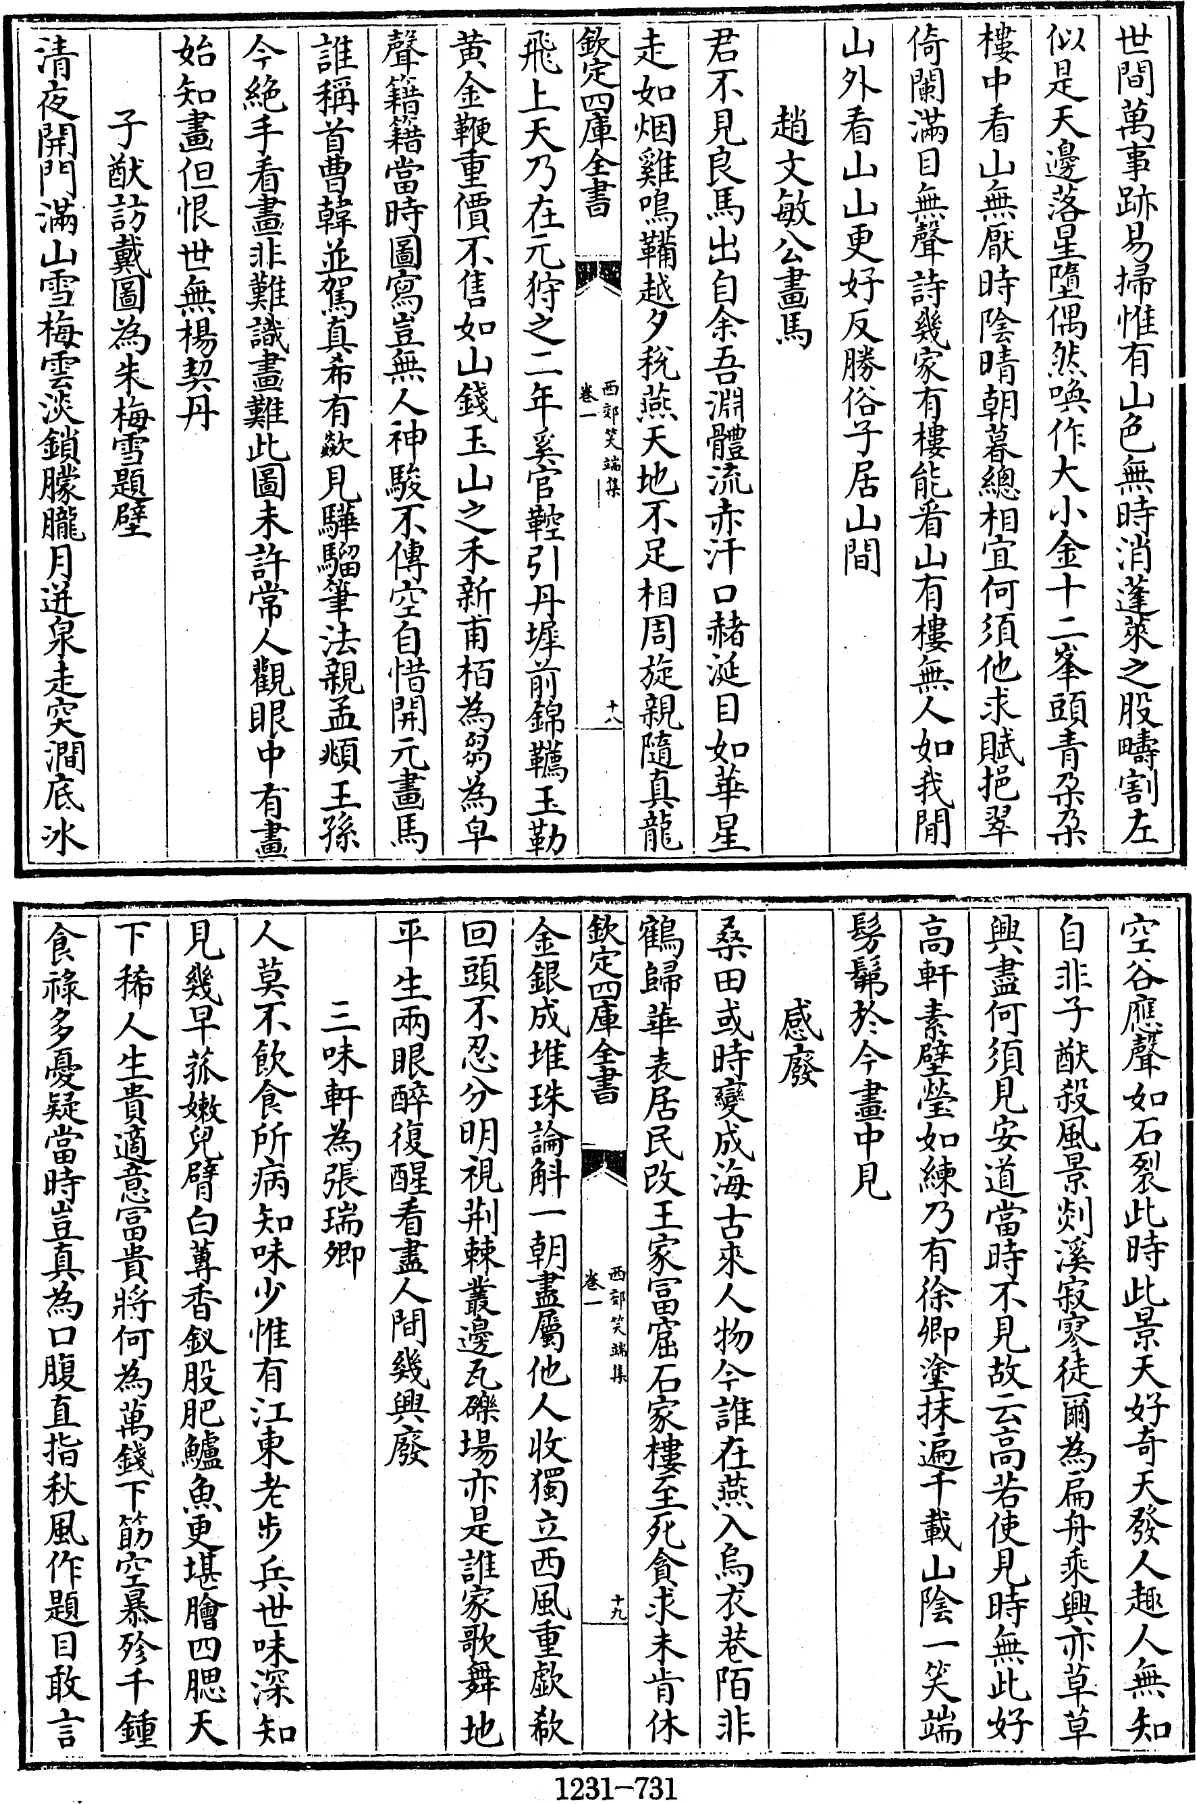 世間萬事跡易掃惟有山色無時消蓬萊之股疇割左
似是天邊落星墮偶然喚作大小金十二峯頭青朵朵
樓中看山無厭時陰晴朝暮總相宜何須他求賦挹翠
倚闌滿目無聲詩幾家有樓能看山有樓無人如我閒
山外看山山更好反勝俗子居山間
趙文敏公畫馬
君不見良馬出自余吾淵體流赤汗口赭涎目如華星
走如烟雞鳴鞴越夕稅燕天地不足相周旋親隨真龍
欽定四庫全書
西郊笑端集
卷一
十八
飛上天乃在元狩之二年奚官鞚引丹墀前錦韉玉勒
黃金鞭重價不售如山錢玉山之禾新甫栢為芻為皁
聲籍籍當時圖寫豈無人神駿不傳空自惜開元畫馬
誰稱首曹韓並駕真希有歘見驊騮筆法親孟頫王孫
今絶手看畫非難識畫難此圖未許常人觀眼中有畫
始知畫但恨世無楊契丹
子猷訪戴圖為朱梅雪題壁
清夜開門滿山雪梅雲淡鎖朦朧月迸泉走突澗底冰
空谷應聲如石裂此時此景天好奇天發人趣人無知
自非子猷殺風景剡溪寂寥徒爾為扁舟乘興亦草草
興盡何須見安道當時不見故云高若使見時無此好
高軒素壁瑩如練乃有徐卿塗抹遍千載山陰一笑端
髣髴於今畫中見
感廢
桑田或時變成海古來人物今誰在燕入烏衣巷陌非
鶴歸華表居民改王家富窟石家樓至死貪求未肯休
欽定四庫全書
西郊笑端集
卷一
十九
金銀成堆珠論斛一朝盡屬他人收獨立西風重歔欷
回頭不忍分明視荆棘叢邊瓦礫場亦是誰家歌舞地
平生兩眼醉復醒看盡人間幾興廢
三味軒為張瑞卿
人莫不飲食所病知味少惟有江東老步兵世味深知
見幾早菰嫩兒臂白蓴香釵股肥鱸魚更堪膾四腮天
下稀人生貴適意富貴將何為萬錢下筯空慕殄千鍾
食祿多憂疑當時豈真為口腹直指秋風作題目敢言
1231-731